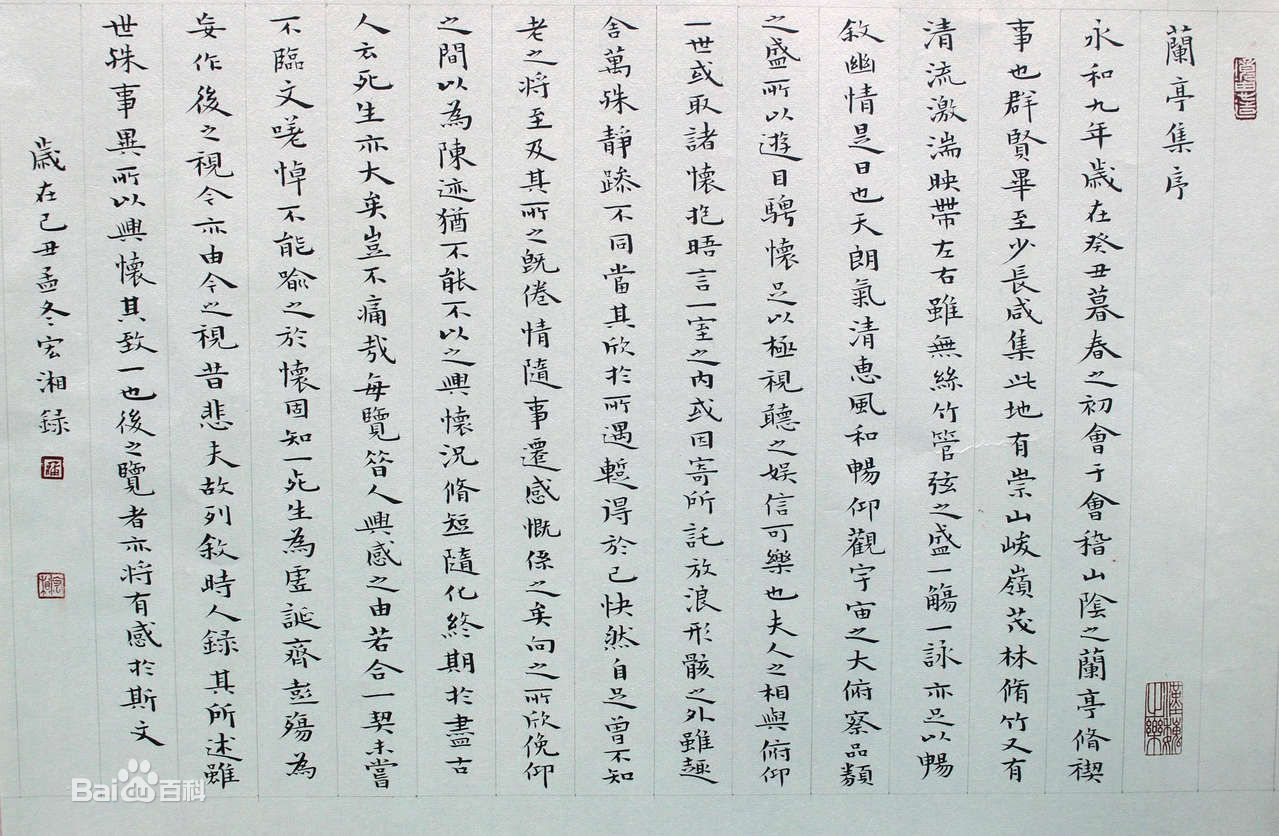 蘭亭集序
永和九年歲在癸丑暮春之初會于會稽山陰之蘭亭脩禊
事也群賢畢至少長咸集此地有崇山峻嶺茂林脩竹又有
清流激湍映帶左右雖無絲竹管弦之盛一觴一詠亦足以暢
敘幽情是日也天朗氣清惠風和暢仰觀宇宙之大俯察品類
之盛所以遊目騁懷足以極視聽之娛信可樂也夫人之相與俯仰
一世或取諸懷抱晤言一室之內或因寄所託放浪形骸之外雖趣
舍萬殊靜躁不同當其欣於所遇蹔得於己快然自足曾不知
老之將至及其所之既倦情隨事遷感慨係之矣向之所欣俛仰
之間以為陳迹猶不能不以之興懷況脩短隨化終期於盡古
人云死生亦大矣豈不痛哉每覽昔人興感之由若合一契未嘗
不臨文嗟悼不能喻之於懷固知一死生為虛誕齊彭殤為
妄作後之視今亦由今之視昔悲夫故列敘時人錄其所述雖
世殊事異所以興懷其致一也後之覽者亦將有感於斯文
歲在己丑孟冬宏湘録
Bai百科